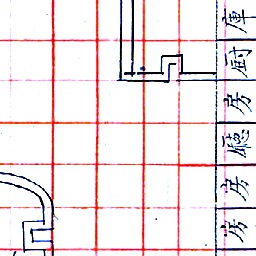 庫
厨
房
廳
房
房